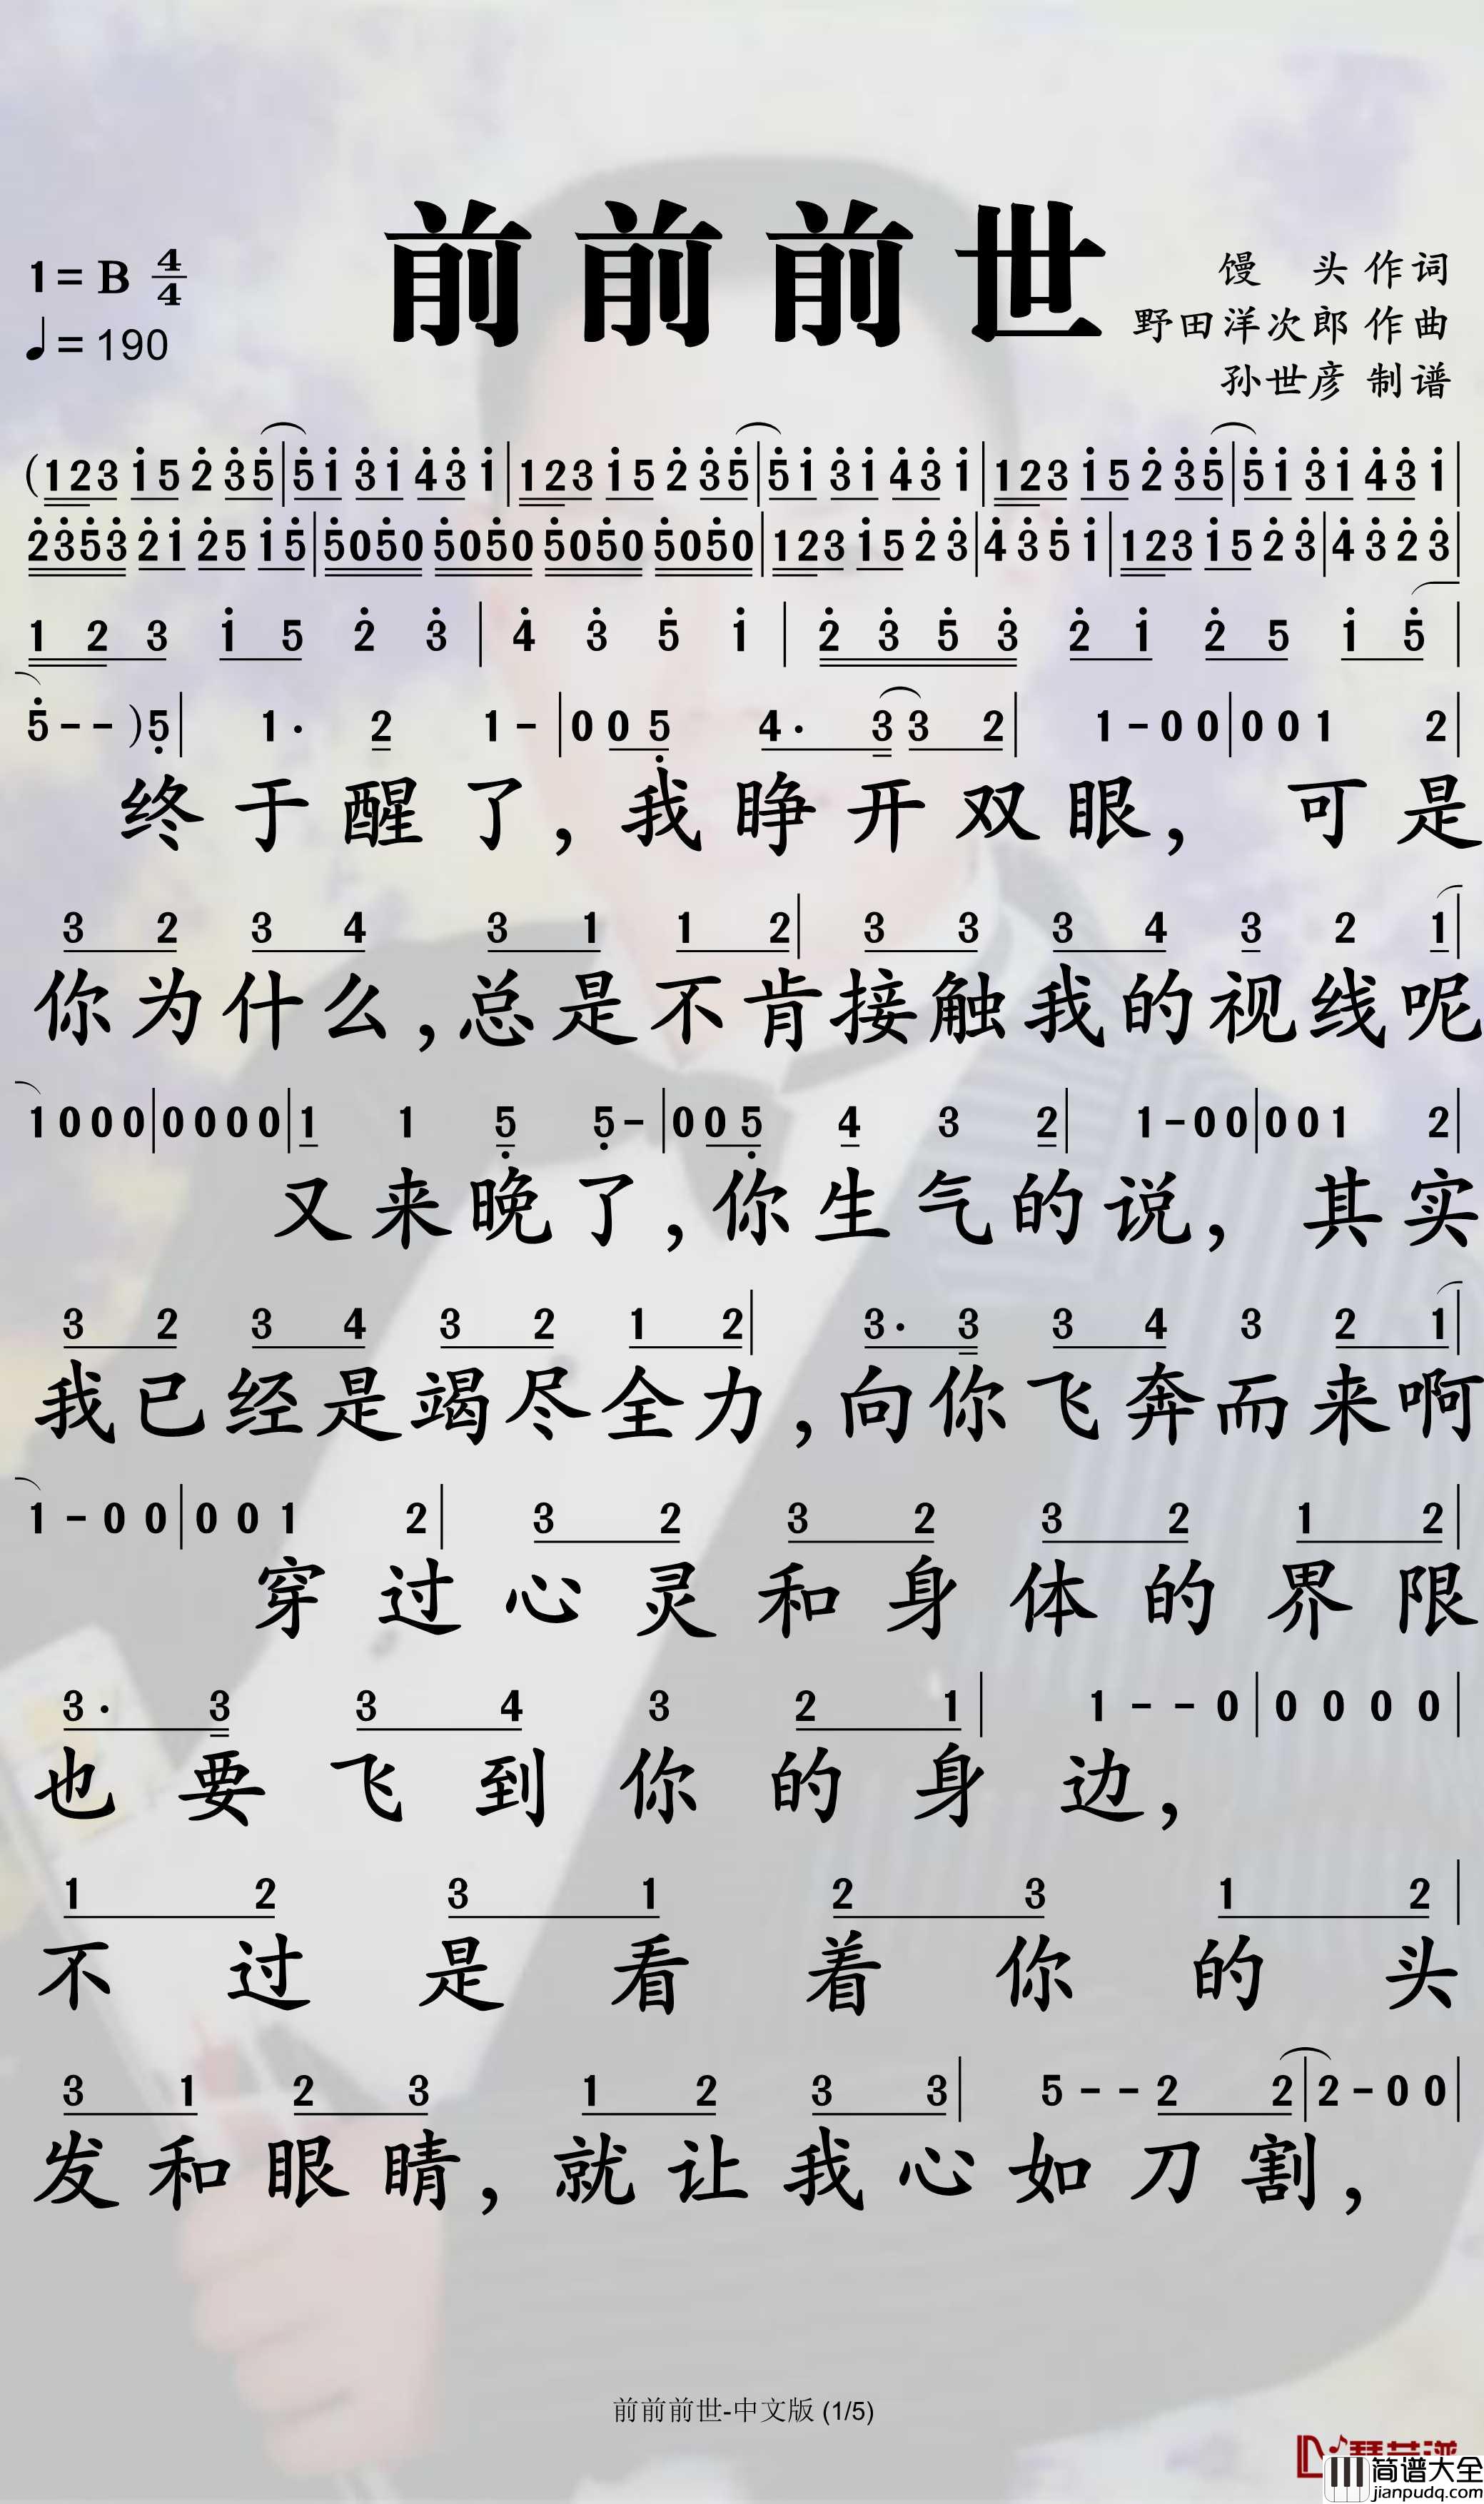 前前前世
1=B 4/4
♩=190
馒 头 作词
野田洋次郎 作曲
孙世彦 制谱
(123 15 2 35|51 31 43 1|123 15 2 35|51 31 43 1|123 15 2 35|51 31 43 1|
2353 21 25 15|5050 5050 5050 5050|123 15 2 3|4 3 5 1|123 15 2 3|4 3 2 3|
1 2 3 1 5 2 3|4 3 5 1|2 3 5 3 2 1 2 5 1 5|
5 - - )5|1· 2 1 -|0 0 5 4· 3 3 2|1 - 0 0|0 0 1 2|
终于醒了,我睁开双眼,可是
3 2 3 4 3 1 1 2|3 3 3 4 3 2 1|
你为什么,总是不肯接触我的视线呢
1 0 0 0|0 0 0 0|1 1 5 5 -|0 0 5 4 3 2|1 - 0 0|0 0 1 2|
又来晚了,你生气的说,其实
3 2 3 4 3 2 1 2|3· 3 3 4 3 2 1|
我已经是竭尽全力,向你飞奔而来啊
1 - 0 0|0 0 1 2|3 2 3 2 3 2 1 2|
穿过心灵和身体的界限
3· 3 3 4 3 2 1|1 - - 0|0 0 0 0|
也要飞到你的身边,
1 2 3 1 2 3 1 2|
不过是看着你的头
3 1 2 3 1 2 3 3|5 - - 2 2|2 - 0 0|
发和眼睛,就让我心如刀割,
前前前世-中文版 (1/5)
简谱大全
jianpudq.com